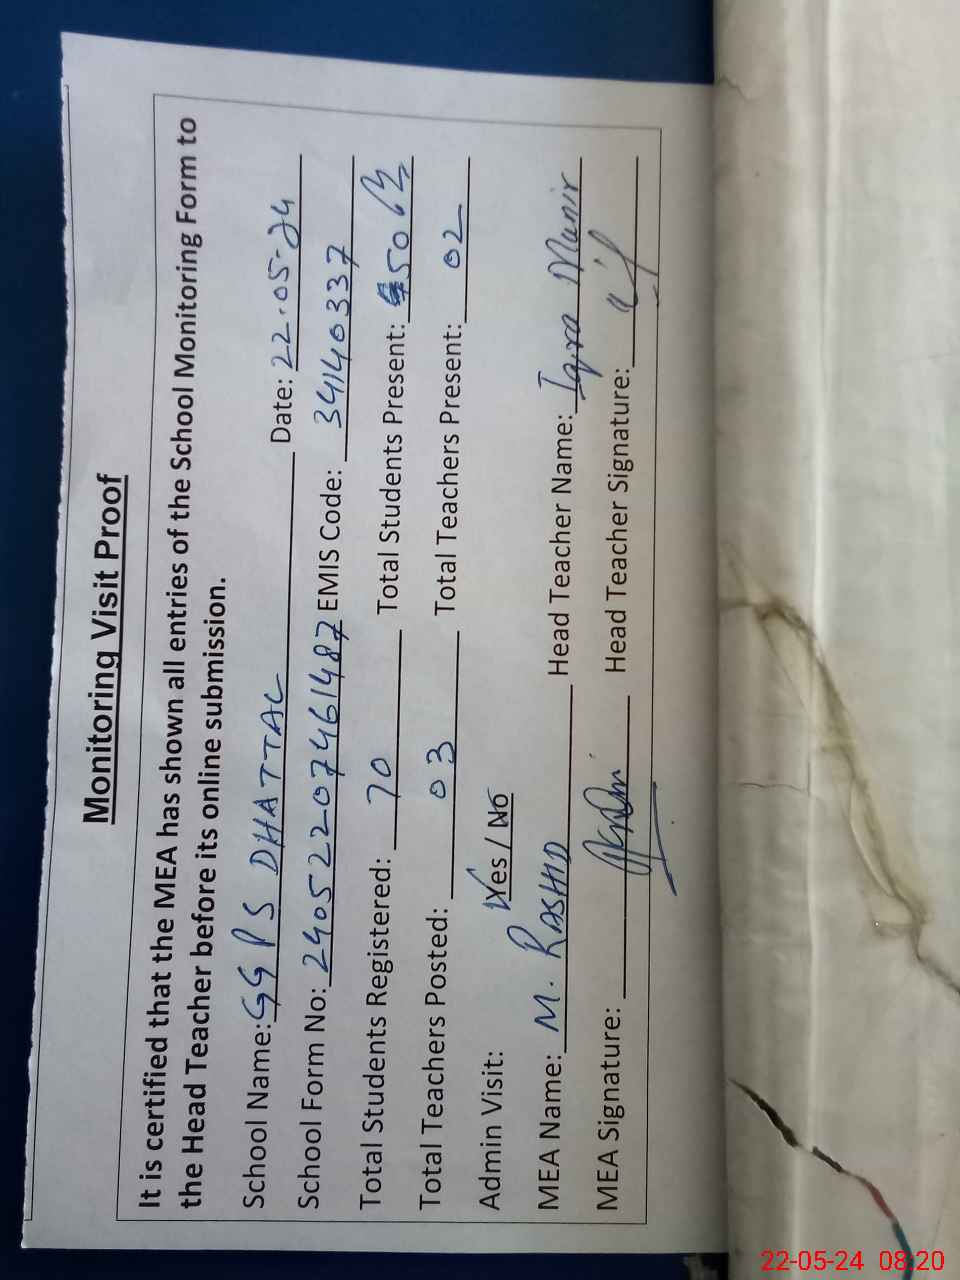 Monitoring Visit Proof
It is certified that the MEA has shown all entries of the School Monitoring Form to
the Head Teacher before its online submission.
School Name: GGPS DHATTAL Date: 22.05-24
School Form No: 24052207461487 EMIS Code: 34140337
Total Students Registered: 70 Total Students Present: 50
Total Teachers Posted: 03 Total Teachers Present: 02
Admin Visit: Yes / No
MEA Name: M. RASHID Head Teacher Name: Iqra Munir
MEA Signature: Head Teacher Signature:
22-05-24 08:20